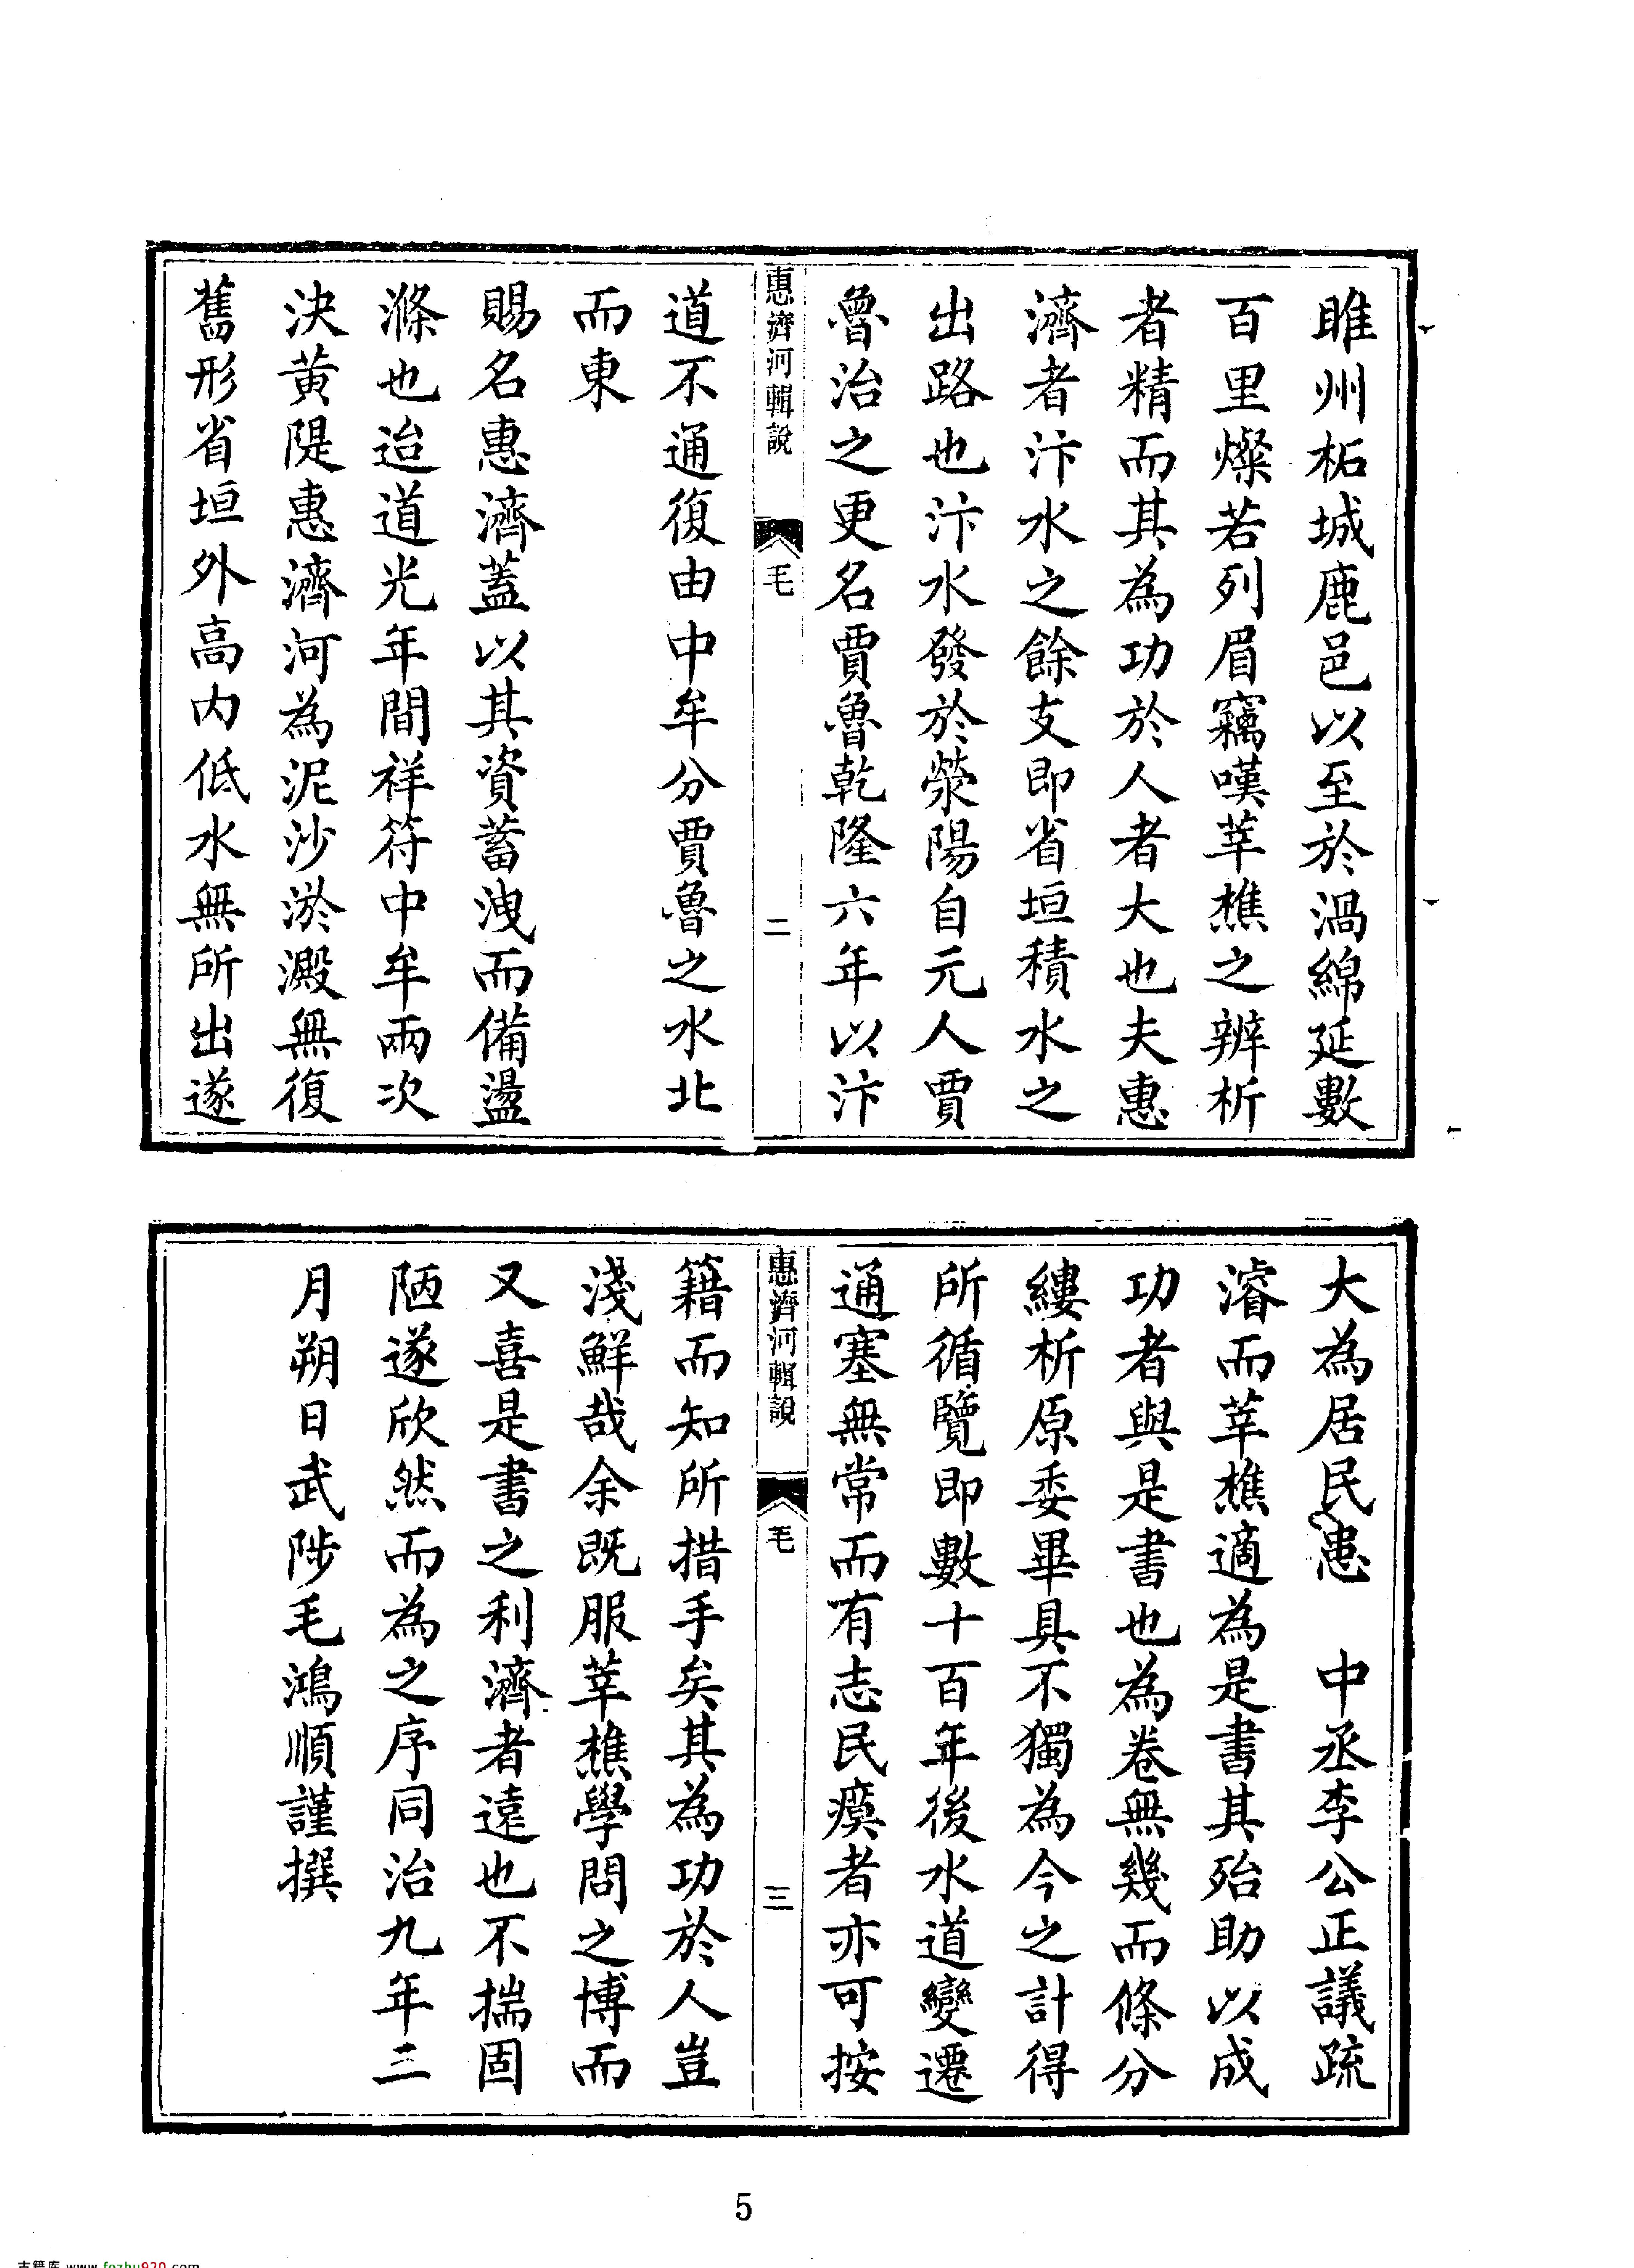 睢州柘城鹿邑以至於渦綿延數
百里燦若列眉竊嘆莘樵之辨析
者精而其為功於人者大也夫惠
濟者汴水之餘支即省垣積水之
出路也汴水發於滎陽自元人賈
魯治之更名賈魯乾隆六年以汴
惠濟河輯說
毛
二
道不通復由中牟分賈魯之水北
而東
賜名惠濟蓋以其資蓄洩而備盪
滌也迨道光年間祥符中牟兩次
決黃隄惠濟河為泥沙淤澱無復
舊形省垣外高內低水無所出遂
大為居民患 中丞李公正議疏
濬而莘樵適為是書其殆助以成
功者與是書也為卷無幾而條分
縷析原委畢具不獨為今之計得
所循覽即數十百年後水道變遷
通塞無常而有志民瘼者亦可按
惠濟河輯說
毛
三
籍而知所措手矣其為功於人豈
淺鮮哉余既服莘樵學問之博而
又喜是書之利濟者遠也不揣固
陋遂欣然而為之序同治九年二
月朔日武陟毛鴻順謹撰
5
古籍库 www.fozhu920.com